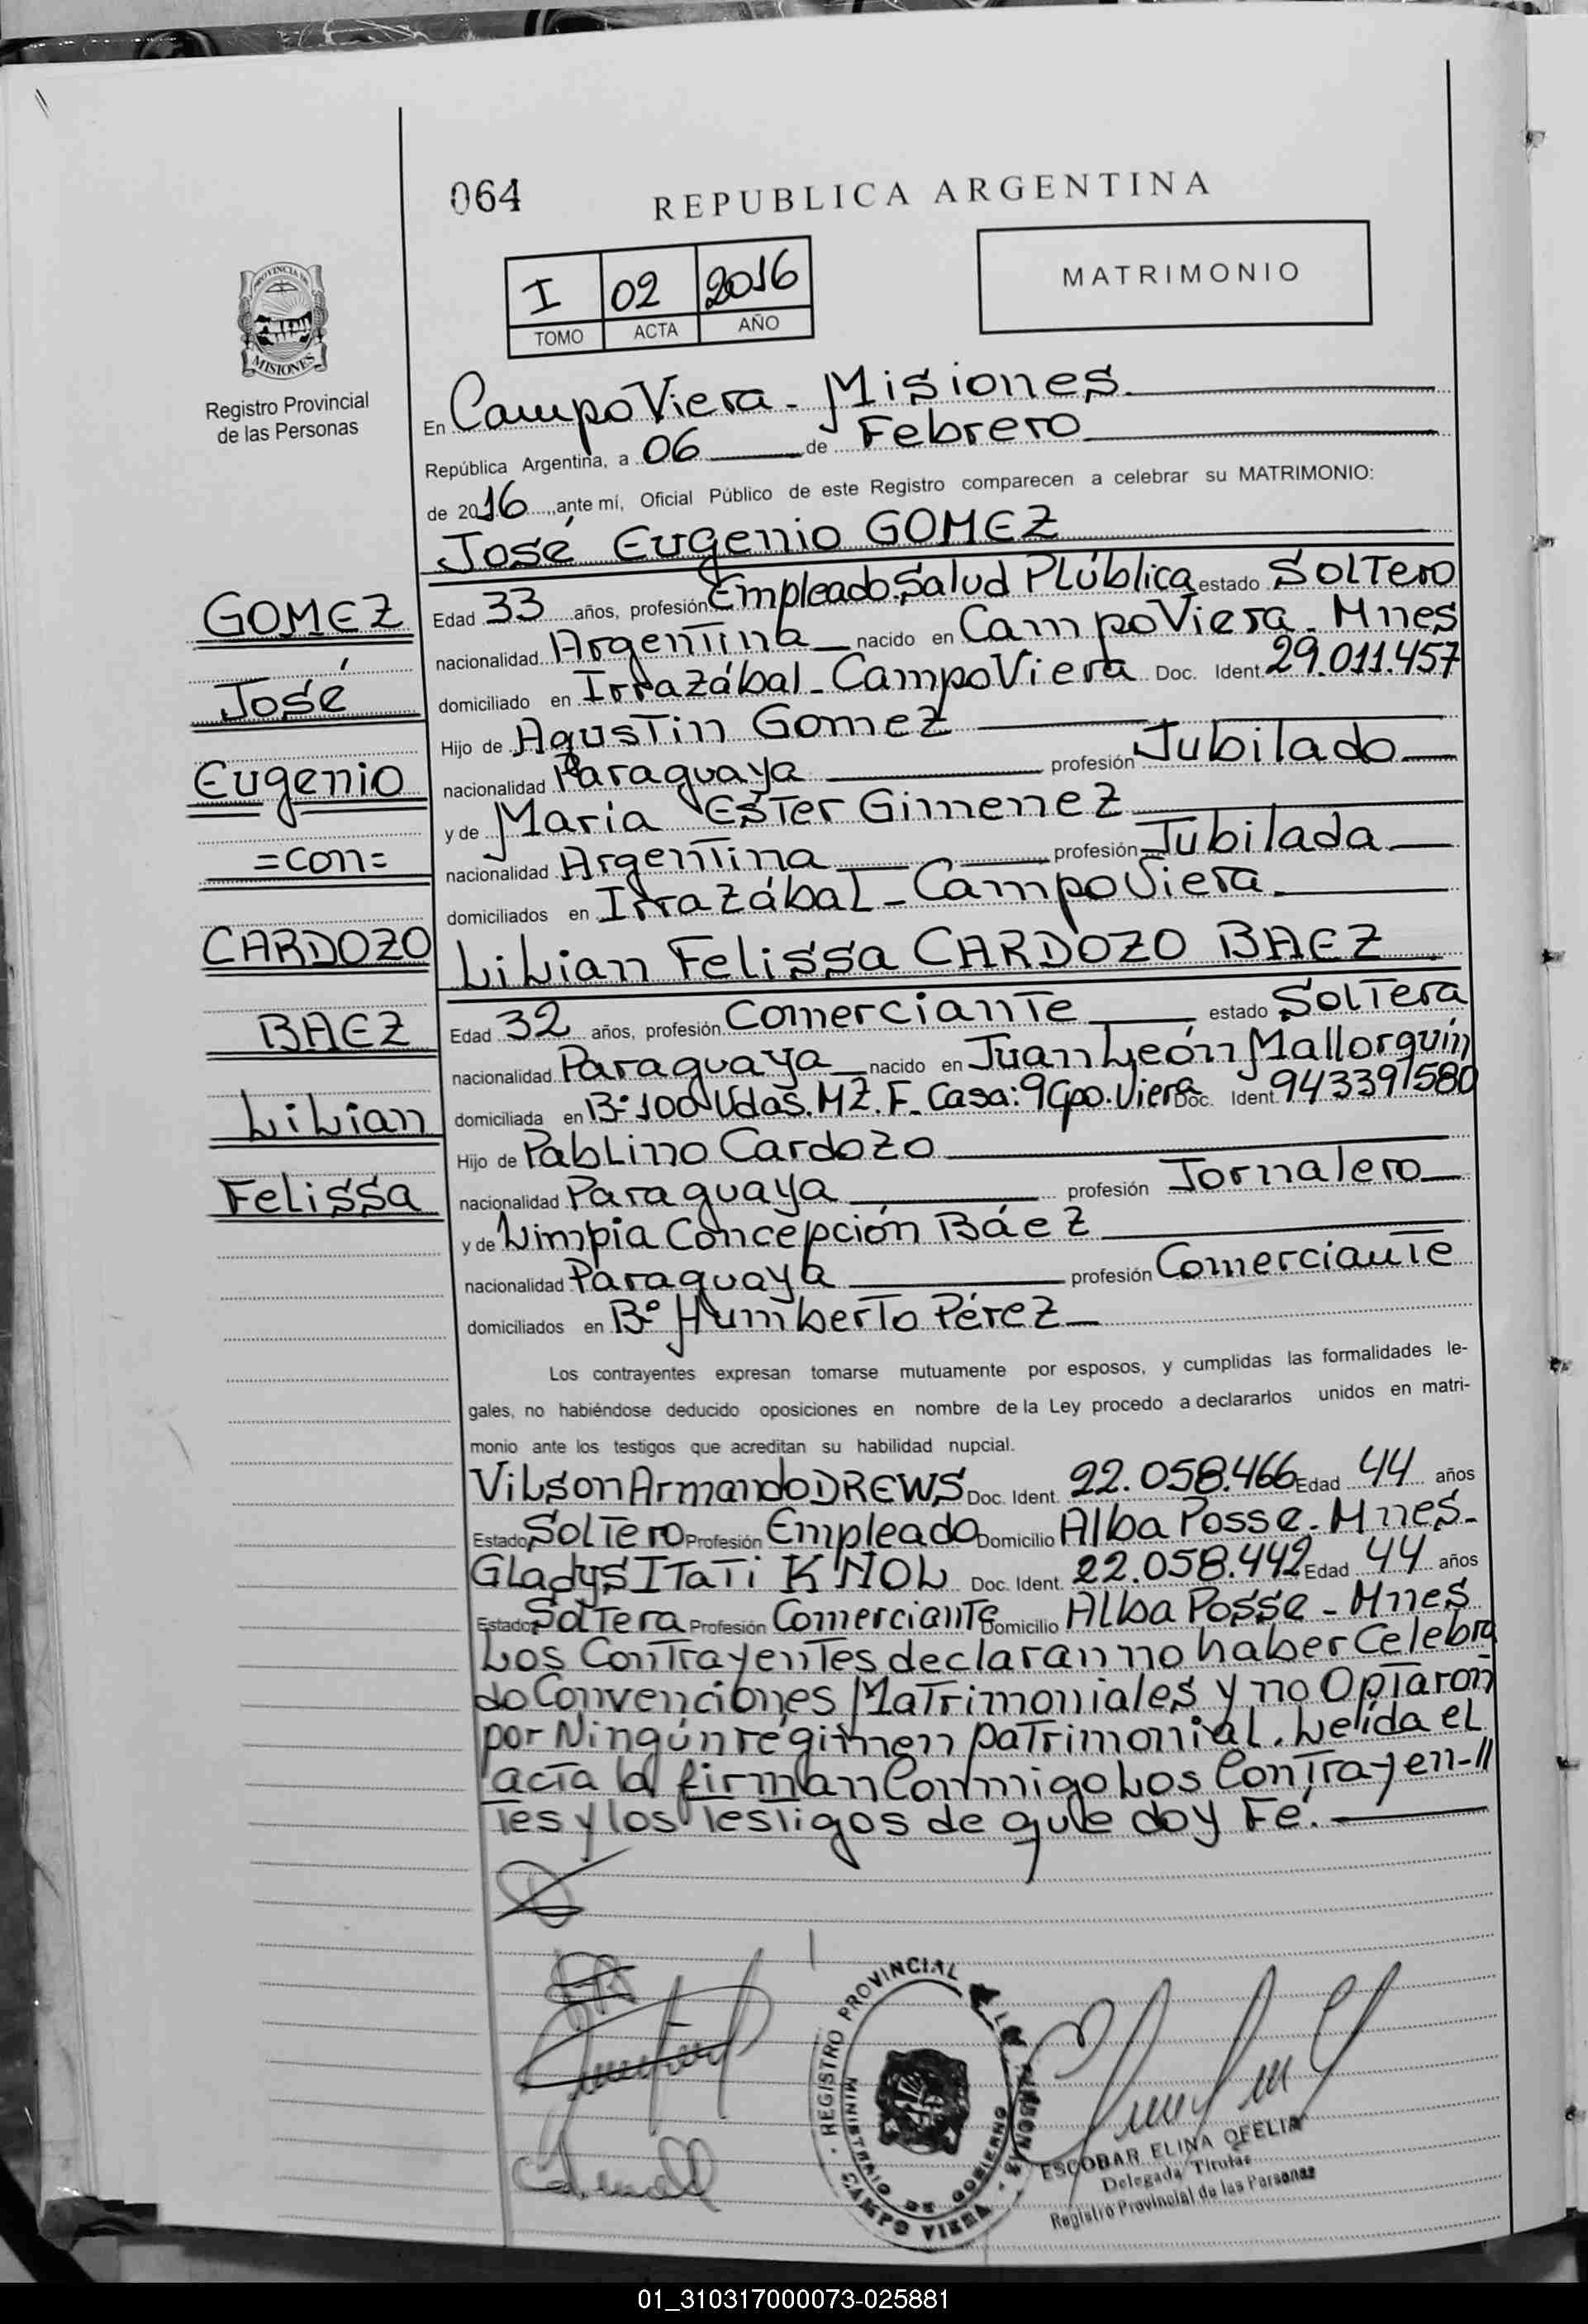 064
REPUBLICA ARGENTINA
I 02 2016
TOMO ACTA AÑO
MATRIMONIO
PROVINCIA DE
MISIONES
Registro Provincial
de las Personas
En Campo Viera - Misiones.
República Argentina, a 06 de Febrero
de 2016 ante mí, Oficial Público de este Registro comparecen a celebrar su MATRIMONIO:
José Eugenio GOMEZ
GOMEZ
José
Eugenio
=con=
CARDOZO
BAEZ
Lilian
Felissa
Edad 33 años, profesión Empleado Salud PLública estado Soltero
nacionalidad Argentina nacido en Campo Viera - Mnes
domiciliado en Irrazábal - Campo Viera Doc. Ident. 29.011.457
Hijo de Agustin Gomez
nacionalidad Paraguaya profesión Jubilado
y de Maria Ester Gimenez
nacionalidad Argentina profesión Jubilada
domiciliados en Irrazábal - Campo Viera
Lilian Felissa CARDOZO BAEZ
Edad 32 años, profesión Comerciante estado Soltera
nacionalidad Paraguaya nacido en Juan León Mallorquín
domiciliada en Bº 100 Vdas. MZ. F. Casa: 9 Cpo. Viera Doc. Ident. 943391580
Hijo de Pablino Cardozo
nacionalidad Paraguaya profesión Jornalero
y de Limpia Concepción Báez
nacionalidad Paraguaya profesión Comerciante
domiciliados en Bº Humberto Pérez
Los contrayentes expresan tomarse mutuamente por esposos, y cumplidas las formalidades le-
gales, no habiéndose deducido oposiciones en nombre de la Ley procedo a declararlos unidos en matri-
monio ante los testigos que acreditan su habilidad nupcial.
Vilson Armando DREWS Doc. Ident. 22.058.466 Edad 44 años
Estado Soltero Profesión Empleado Domicilio Alba Posse - Mnes.
Gladys Itati KNOL Doc. Ident. 22.058.442 Edad 44 años
Estado Soltera Profesión Comerciante Domicilio Alba Posse - Mnes
Los Contrayentes declaran no haber celebra
do Convenciones Matrimoniales y no Optaron
por Ningún régimen patrimonial. Leída el
acta la firman Conmigo Los Contrayen-//
tes y los testigos de que doy Fé.
REGISTRO PROVINCIAL DE LAS PERSONAS
MINISTERIO DE GOBIERNO
CAMPO VIERA
ESCOBAR ELINA OFELIA
Delegada Titular
Registro Provincial de las Personas
01_310317000073-025881